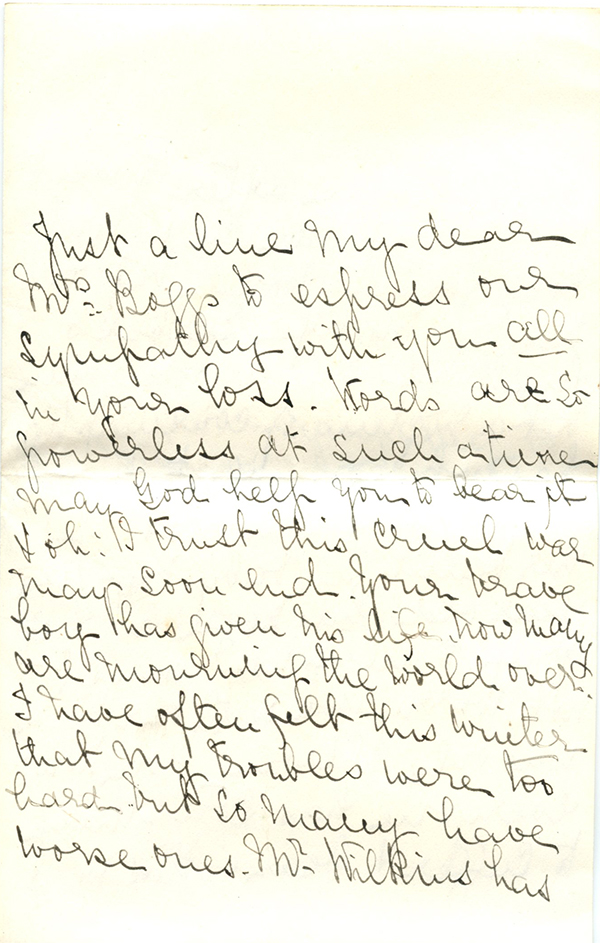 Just a line my dear
Mrs. Boggs to express our
sympathy with you all
in your loss. Words are so
powerless at such a time
may God help you to bear it
& oh! I trust this cruel war
may soon end. Your brave
boy has given his life. how many
are mourning the world over!
I have often felt this winter
that my troubles were too
hard but so many have
worse ones. Mr. Wilkins has